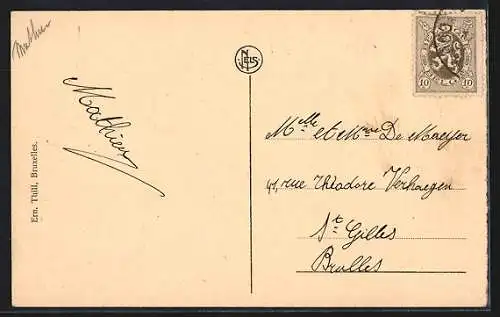 Mathieu
NELS
10 BELGIE 10
Mathieu
Mlle et Mme De Maeyer
41, rue Théodore Verhaegen
St Gilles
Brulles
Ern. Thill, Bruxelles.